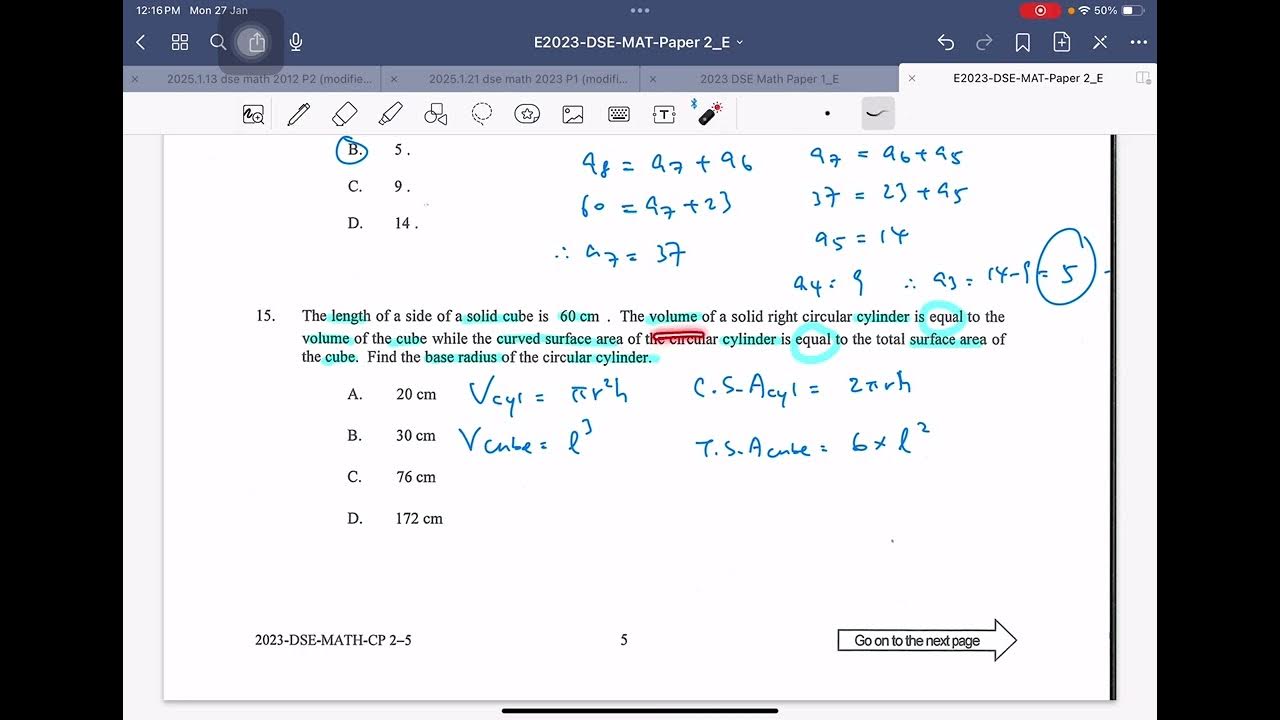 12:16 PM Mon 27 Jan
50%
E2023-DSE-MAT-Paper 2_E
2025.1.13 dse math 2012 P2 (modifie...
2025.1.21 dse math 2023 P1 (modifi...
2023 DSE Math Paper 1_E
E2023-DSE-MAT-Paper 2_E
B. 5 .
C. 9 .
D. 14 .
a8 = a7 + a6
60 = a7 + 23
∴ a7 = 37
a7 = a6 + a5
37 = 23 + a5
a5 = 14
a4 = 9 ∴ a3 = 14-9 = 5
15. The length of a side of a solid cube is 60 cm . The volume of a solid right circular cylinder is equal to the
volume of the cube while the curved surface area of the circular cylinder is equal to the total surface area of
the cube. Find the base radius of the circular cylinder.
A. 20 cm
B. 30 cm
C. 76 cm
D. 172 cm
Vcyl = πr²h
Vcube = l³
C.S.Acyl = 2πrh
T.S.Acube = 6 × l²
2023-DSE-MATH-CP 2–5
5
Go on to the next page